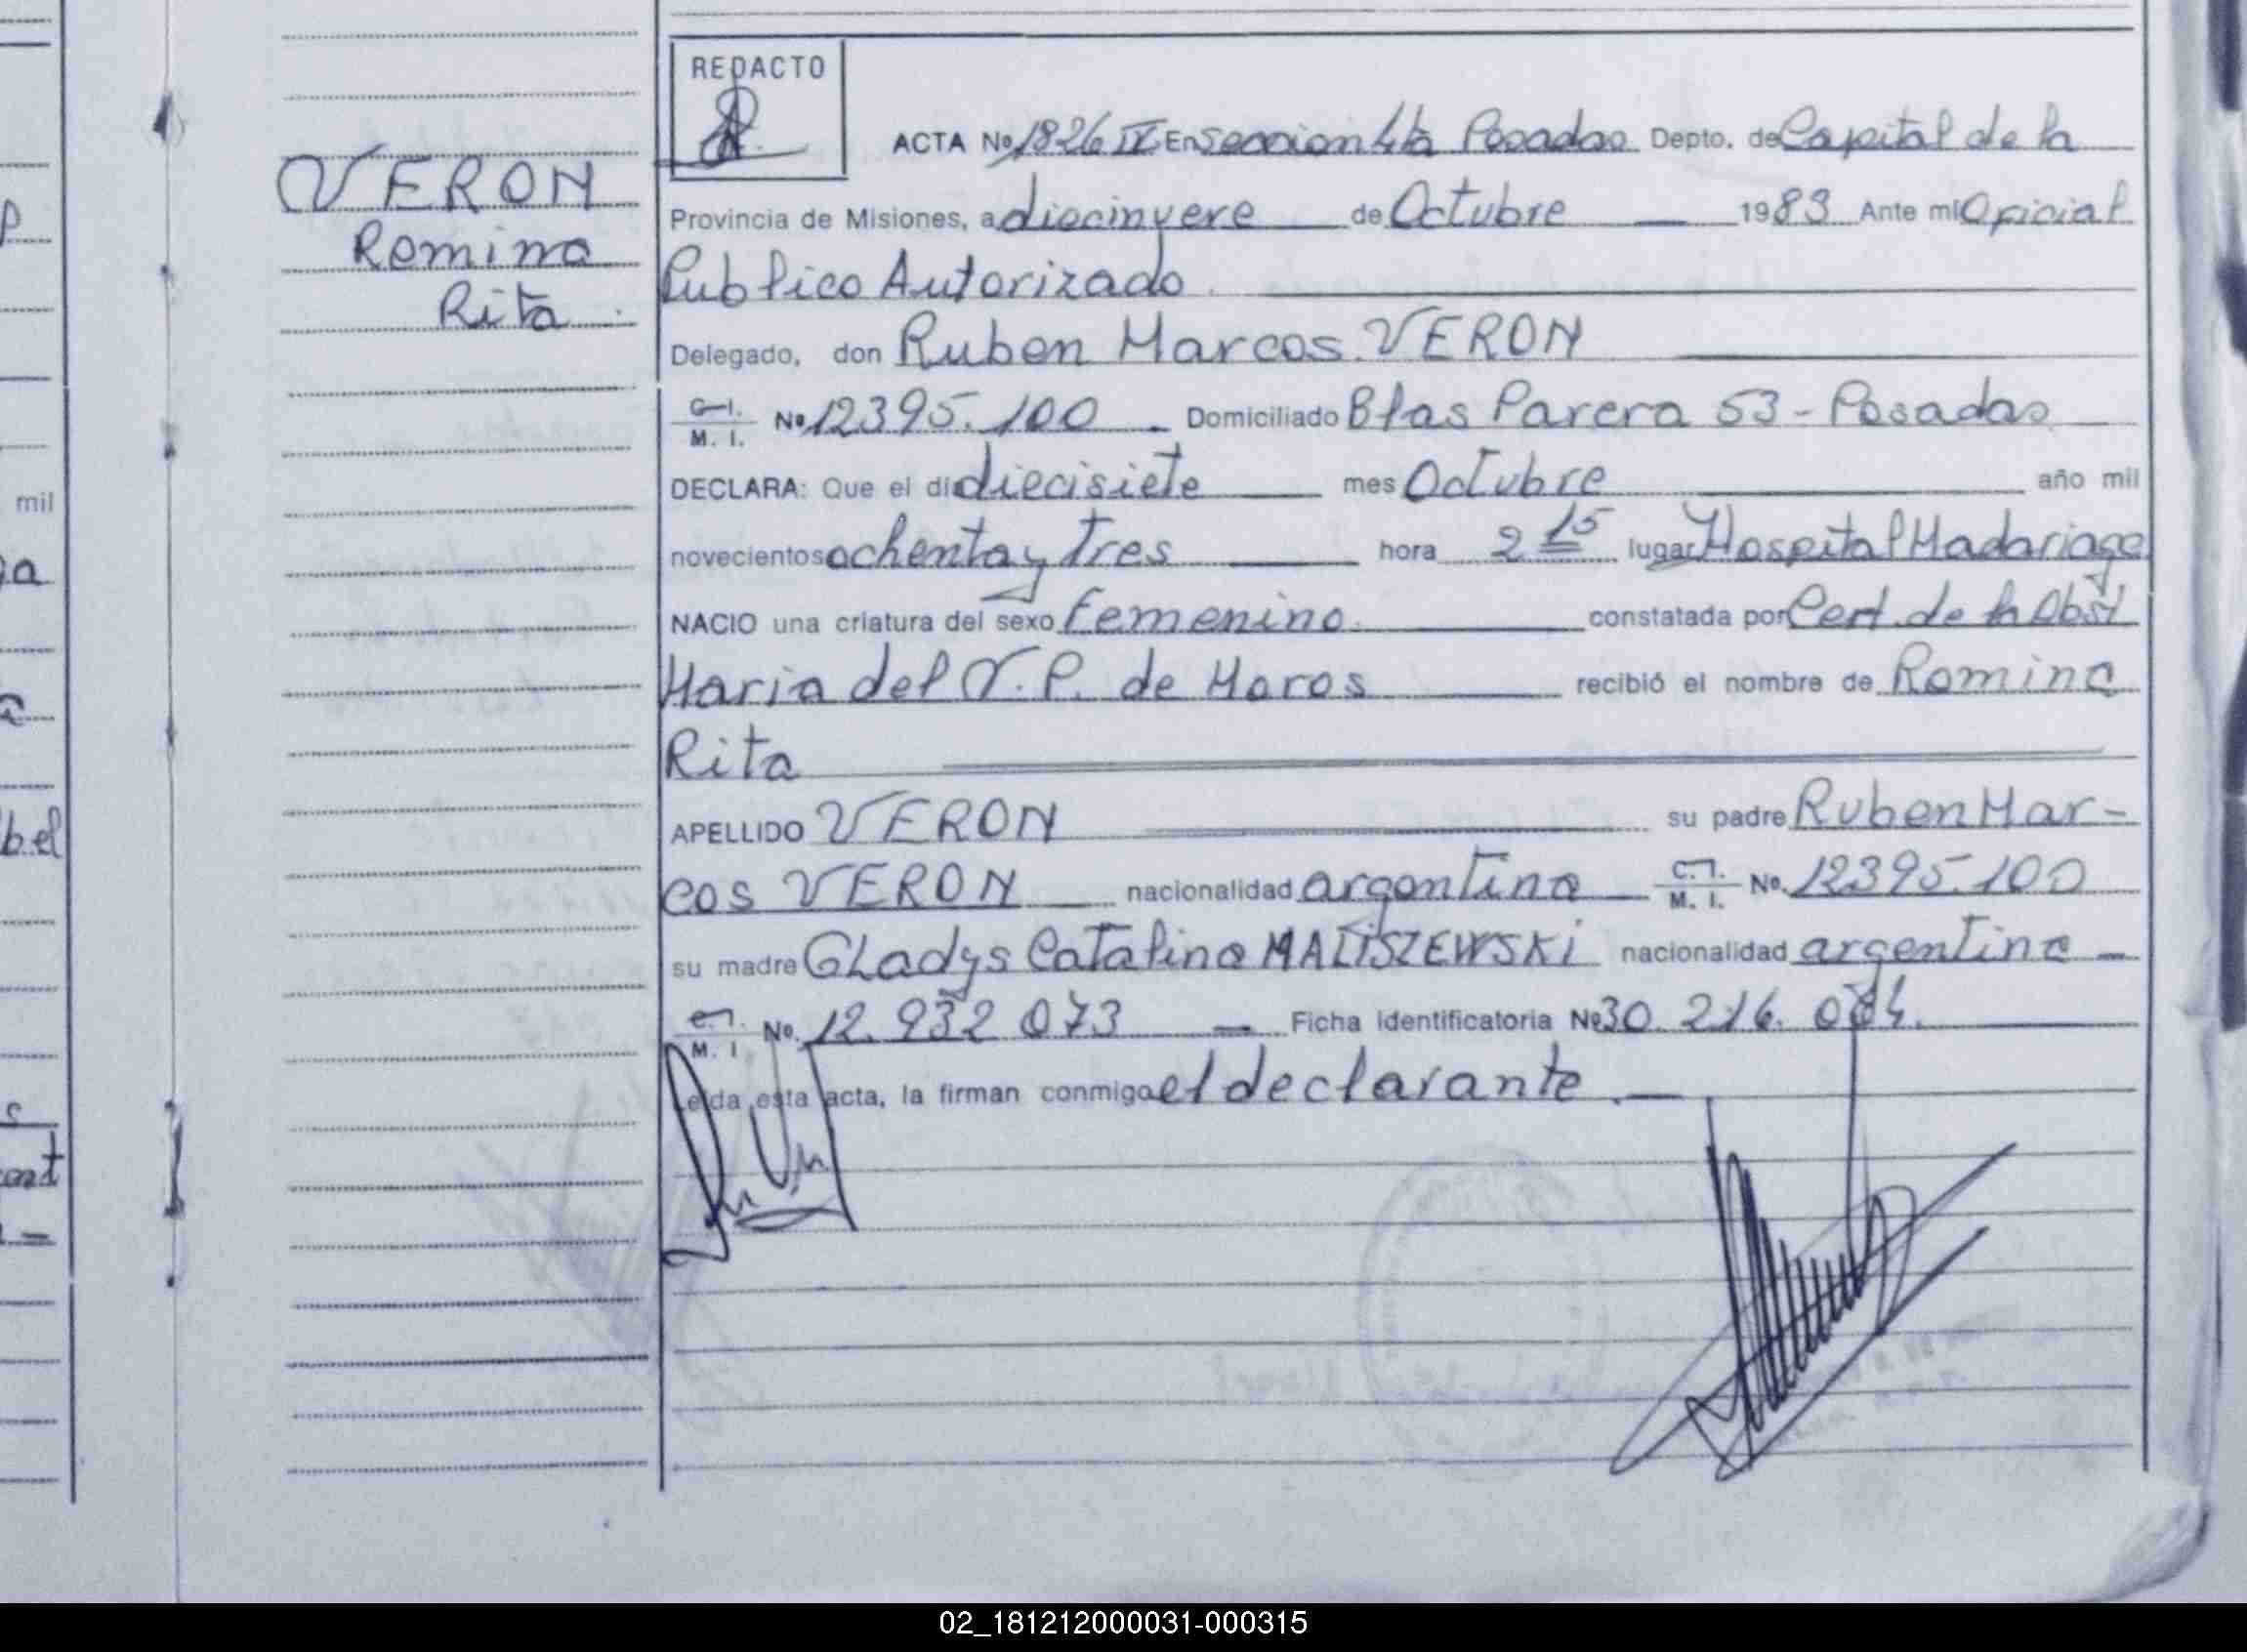 REDACTO
ACTA Nº 1826 IV En Seccion 4ta Posadas Depto. de Capital de la
VERON
Romina
Rita
Provincia de Misiones, a diecinueve de Octubre 1983 Ante mi Oficial
Publico Autorizado
Delegado, don Ruben Marcos VERON
C. I.
M. I. Nº 12395.100 Domiciliado Blas Parera 53 - Posadas
DECLARA: Que el día diecisiete mes Octubre año mil
novecientos ochenta y tres hora 2 15 lugar Hospital Madariaga
NACIO una criatura del sexo Femenino constatada por Cert. de la Obst
Maria del V. P. de Moros recibió el nombre de Romina
Rita
APELLIDO VERON su padre Ruben Mar-
cos VERON nacionalidad argentina C. I. M. I. Nº. 12395.100
su madre GLadys Catalina MALISZEWSKI nacionalidad argentina
C. I. M. I. Nº. 12.932 073 Ficha Identificatoria Nº 30.216.084.
Leída esta acta, la firman conmigo el declarante
mil
bel
02_181212000031-000315